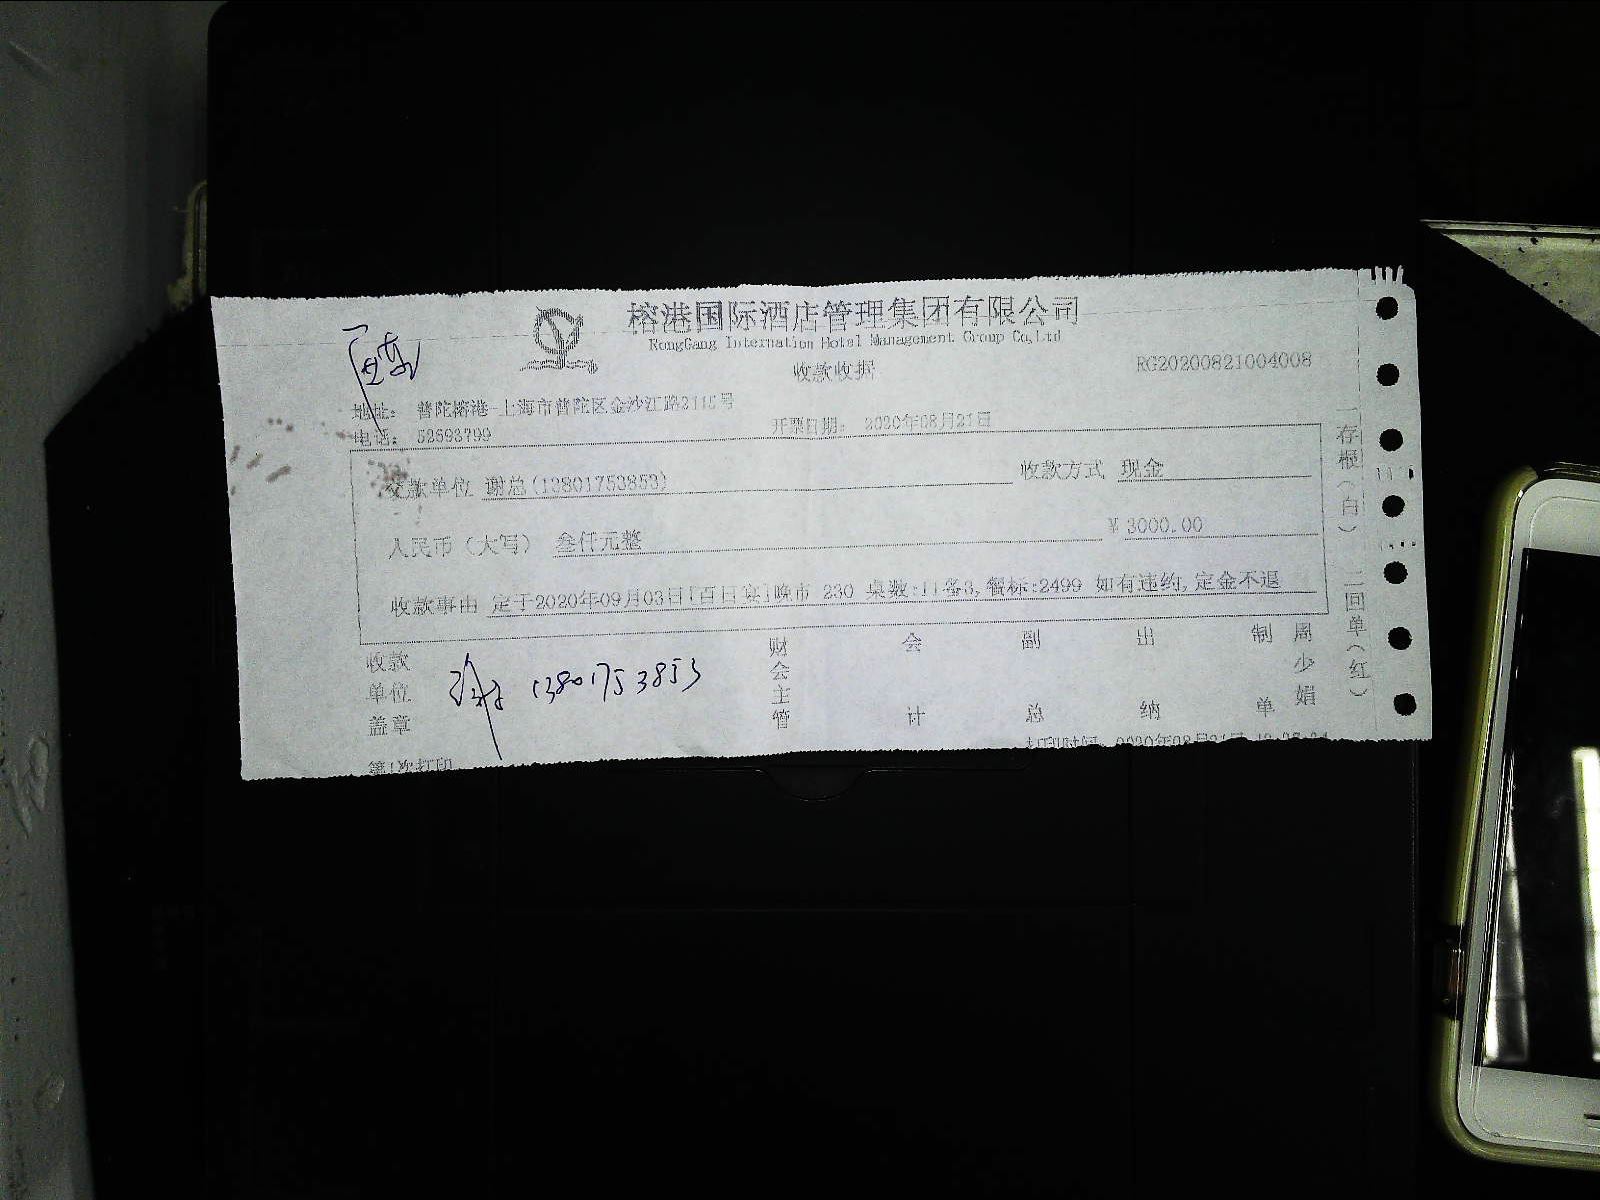 榕港国际酒店管理集团有限公司
RongGang Internation Hotel Management Group Co,Ltd
收款收据
RG20200821004008
地址： 普陀榕港-上海市普陀区金沙江路2115号
电话： 52693799
开票日期： 2020年08月21日
交款单位 谢总(13801753853)
收款方式 现金
人民币（大写） 叁仟元整
￥3000.00
收款事由 定于2020年09月03日[百日宴]晚市 230 桌数:11备3,餐标:2499 如有违约,定金不退
收款单位盖章
13801753853
财会主管
会计
副总
出纳
制单
周少娟
第1次打印
打印时间：2020年08月21日
一存根（白）
二回单（红）